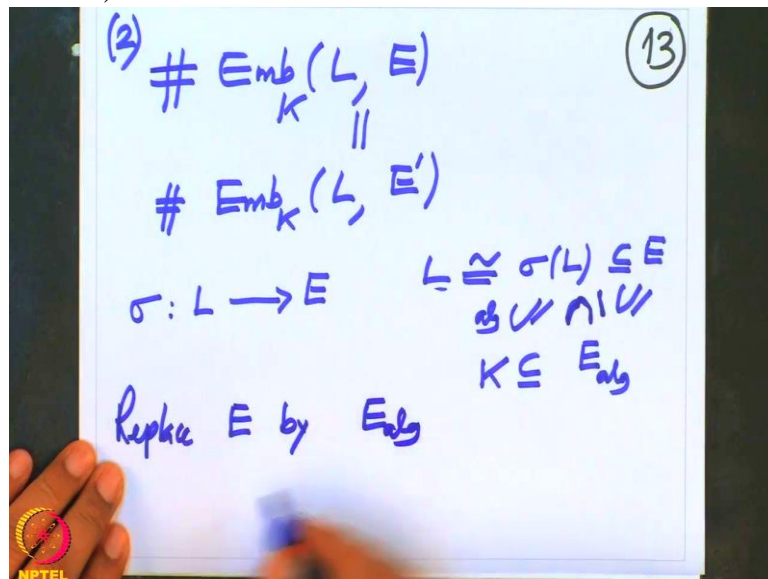 (2) # Emb_K (L, E)
13
||
# Emb_K (L, E')
L ≅ σ(L) ⊆ E
σ : L → E
alg ∪// ∩| ∪//
K ⊆ E_alg
Replace E by E_alg
NPTEL